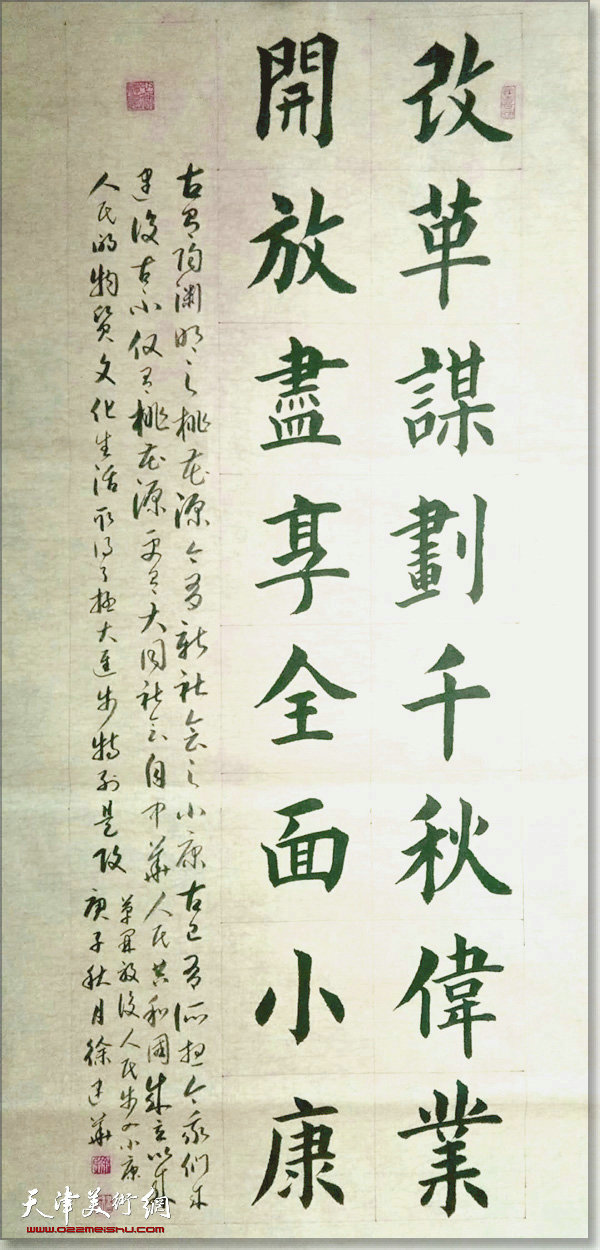 改革謀劃千秋偉業
開放盡享全面小康
古有陶渊明之桃花源今有新社会之小康古已有所想今我们来
建设古不仅有桃花源更有大同社会自中华人民共和国成立以来
人民的物质文化生活取得了极大进步特别是改
革开放后人民步入小康
庚子秋月徐建華
天津美術網
www.022meishu.com